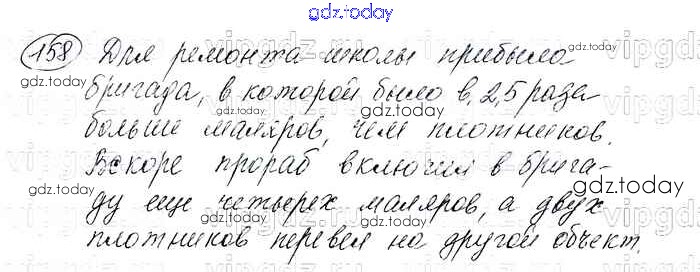 gdz.today
158 Для ремонта школы прибыла
gdz.today
бригада, в которой было в 2,5 раза
gdz.today
больше маляров, чем плотников.
Вскоре прораб включил в брига-
gdz.today
gdz.today
ду еще четырех маляров, а двух
gdz.today
плотников перевел на другой объект.
gdz.today